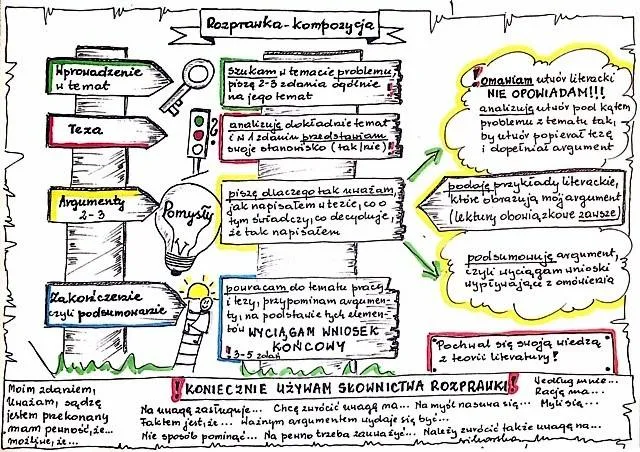 Rozprawka - kompozycja
Wprowadzenie
w temat
szukam w temacie problemu,
piszę 2-3 zdania ogólnie
na jego temat
Teza
analizuję dokładnie temat
i w 1 zdaniu przedstawiam
swoje stanowisko (tak/nie)!
Argumenty
2-3
Pomysły
piszę dlaczego tak uważam,
jak napisałem w tezie, co o
tym świadczy, co decyduje,
że tak napisałem
Zakończenie
czyli podsumowanie
powracam do tematu pracy
i tezy, przypominam argumen-
ty, na podstawie tych elemen-
tów WYCIĄGAM WNIOSEK
KOŃCOWY
! 3-5 zdań
! Omawiam utwór literacki
NIE OPOWIADAM!!!
analizuję utwór pod kątem
problemu z tematu tak,
by utwór popierał tezę
i dopełniał argument
podaję przykłady literackie,
które obrazują mój argument
(lektury obowiązkowe zawsze)
podsumowuję argument,
czyli wyciągam wnioski
wypływające z omówienia
Pochwal się swoją wiedzą
z teorii literatury!
! KONIECZNIE UŻYWAM SŁOWNICTWA ROZPRAWKI!
Moim zdaniem,
Uważam, sądzę
jestem przekonany
mam pewność, że...
możliwe, że...
Na uwagę zasługuje... Chcę zwrócić uwagę na... Na myśl nasuwa się...
Faktem jest, że... Ważnym argumentem wydaje się być...
Nie sposób pominąć... Na pewno trzeba zauważyć... Należy zwrócić także uwagę na...
Według mnie...
Rację ma...
Myli się...